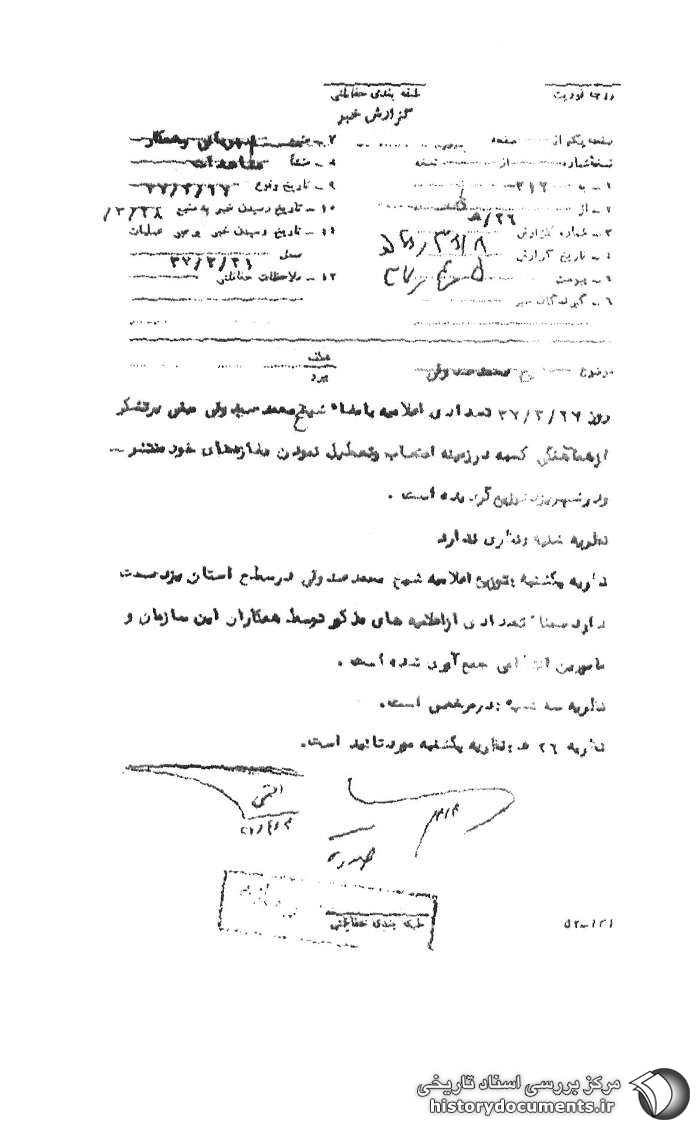 درجه فوریت
طبقه بندی حفاظتی
گزارش خبر
صفحه یکم از صفحه
نسخه شماره از نسخه
۱ ـ به ۳۱۲
۲ ـ از ۲۶/ﻫ
۳ ـ شماره گزارش
۴ ـ تاریخ گزارش
۵ ـ پیوست
۶ ـ گیرندگان خبر
۷ ـ منبع و همکار
۸ ـ منشأ مشاهدات
۹ ـ تاریخ وقوع ۳۷/۳/۲۷
۱۰ ـ تاریخ رسیدن خبر به منبع ۳/۲۸/
۱۱ ـ تاریخ رسیدن خبر به رهبر عملیات
محل ۳۷/۳/۳۱
۱۲ ـ ملاحظات حفاظتی
موضوع شیخ محمد صدوقی
عطف
پیرو
روز ۳۷/۳/۲۷ تعدادی اعلامیه بامضاء شیخ محمد صدوقی مبنی برتشکر
ازهماهنگی کسبه درزمینه اعتصاب وتعطیل نمودن مغازه‌های خود منتشر ـ
ودرشهر یزد توزیع گردیده است .
نظریه شنبه ونظری ندارد
نظریه یکشنبه :توزیع اعلامیه شیخ محمد صدوقی درسطح استان یزد صحت
دارد ضمنا" تعدادی ازاعلامیه های مذکور توسط همکاران این سازمان و
مامورین انتظامی جمع آوری شده است .
نظریه سه شنبه :درمرخصی است.
نظریه ۲۶ ﻫ :نظریه یکشنبه مورد تائید است.
طبقه بندی حفاظتی
۵۲-۱۲۱
مرکز بررسی اسناد تاریخی
historydocuments.ir